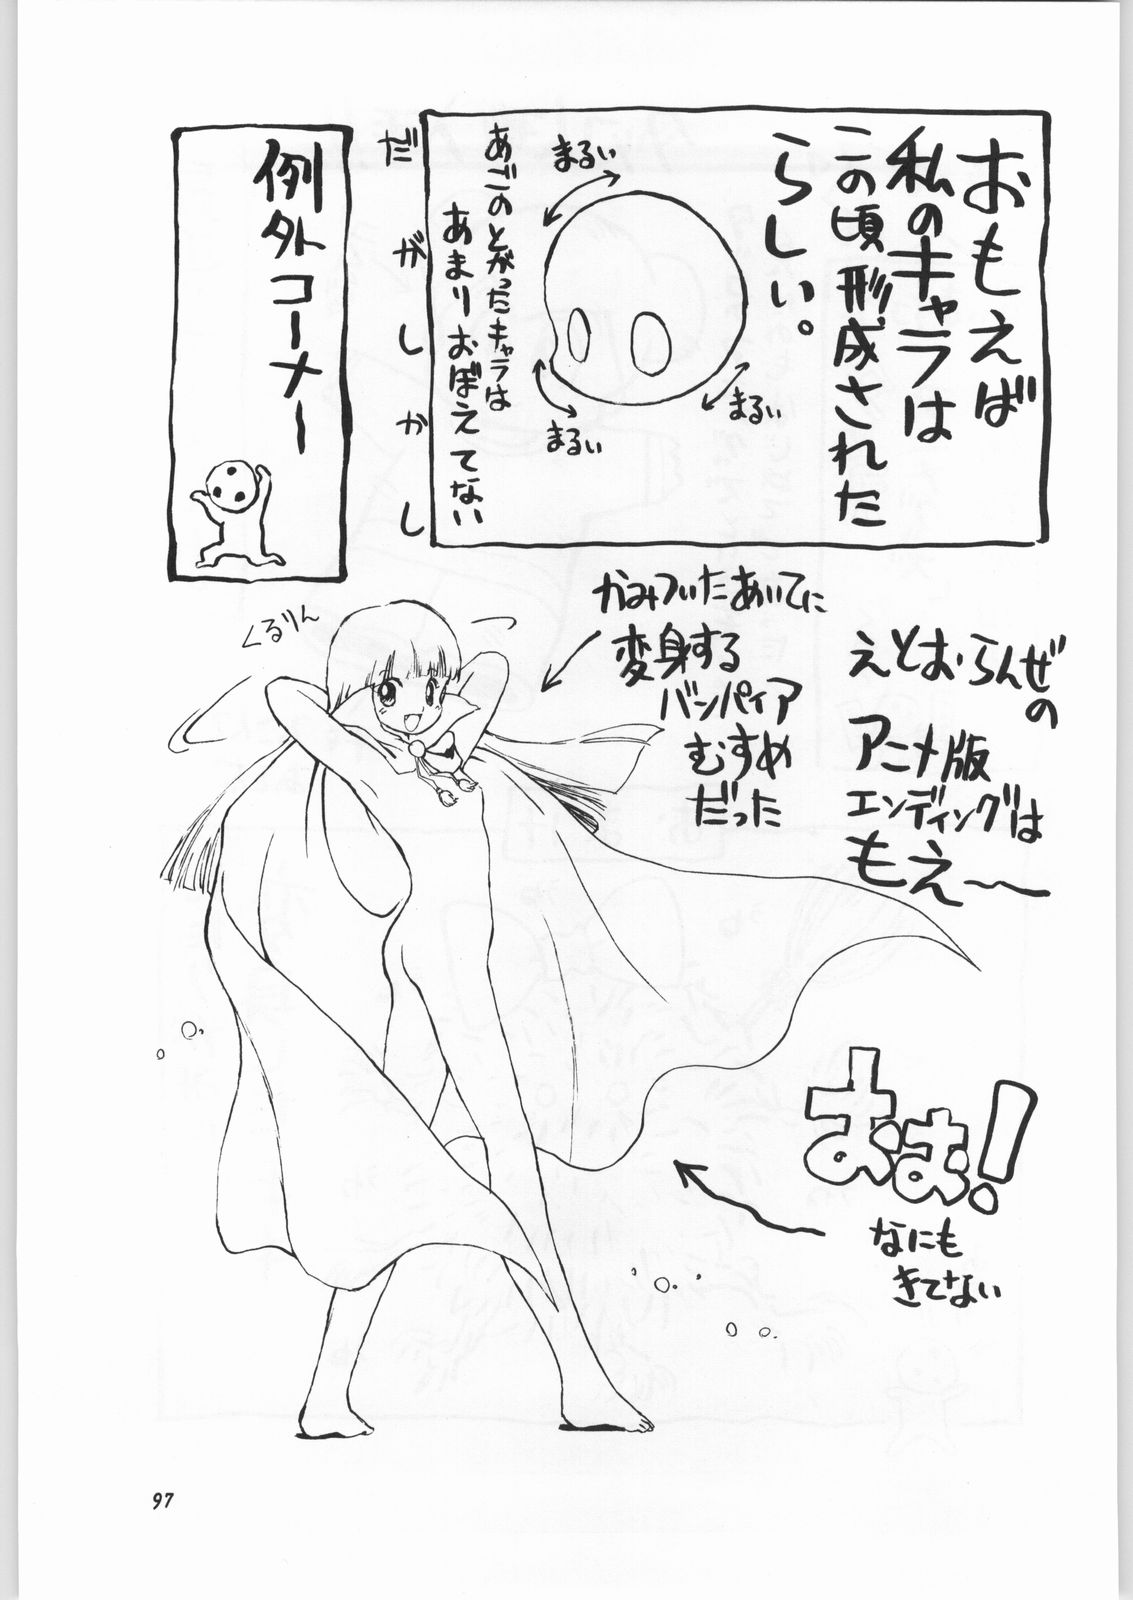 おもえば
私のキャラは
この頃形成された
らしい。
まるい
まるい
まるい
あごのとがったキャラは
あまりおぼえてない
だがしかし
例外コーナー
えとおらんぜの
アニメ版
エンディングは
もえ〜
かみついたあいてに
変身する
バンパイア
むすめ
だった
くるりん
おぉ!
なにも
きてない
97